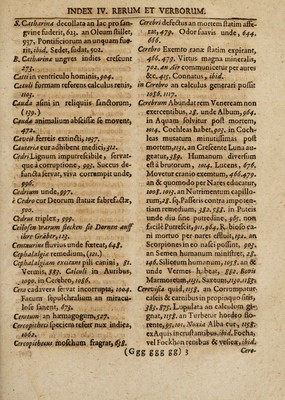 INDEX IV. RERUM ET VERBORUM.
S. Catharina decollata an lac pro san-
guine fuderit, 623. an Oleum stillet,
937. Pontificiorum an unquam fue-
rit, ibid. Sedes, fudat, 502.
B. Catharina ungues indies crescunt
273.
Cati in ventriculo hominis, 904.
Catuli formam referens calculus renis,
1103.
Cauda asini in reliquiis sanctorum,
(139.)
Caudæ animalium abscissæ se movent,
472.
Caveis ferreis extincti, 1097.
Cauteria cur adhibent medici, 312.
Cedri Lignum imputrefibile, servat-
que à corruptione, 993. Succus de-
functa servat, viva corrumpit unde,
996.
Cedrium unde, 997.
è Cedro cur Deorum statuæ fabrefactæ,
500.
Cedrus triplex, 999.
Ceilosen warum stechen sie Dornen auff
ihre Gräber, 125.
Centaurius fluvius unde fœteat, 648.
Cephalalgiæ remedium, (21.)
Cephalalgiam excitans pili canini, 81.
Vermis, 883. Calculi in Auribus,
1090. in Cerebro, 1086.
Cera cadavera servat incorruptas, 1004.
Facum sepulchralium an miracu-
lose sanent, 673.
Centum: an hæmagogum, 507.
Cercopitheci speciem refert nux indica,
1062.
Cercopithecus moschum fragrat, 638.
Cerebri defectus an mortem statim affe-
rat, 479. Odor suavis unde, 644.
666.
Cerebro Exemto tamen statim expirant,
466. 479. Virtus magna mineralis,
702. an Aër communicetur per aures
&c, 415. Connatus, ibid.
in Cerebro an calculus generari possit
1086. 1187.
Cerebrum Abundat rem Veneream non
exercentibus, 28. unde Album, 964.
in Aquam solvitur post mortem,
1014. Cochleas habet, 905. in Coch-
leas mutatum minutissimas post
mortem, 1131. an Crescente Luna au-
geatur, 289. Humanum diversum
est à brutorum, 1004. Lucens, 676.
Movetur cranio exemtum, 466. 479.
an & quomodo per Nares educatur,
1008. 1015. an Nutrimentum capillo-
rum, 28. 63. Passeris contra impoten-
tiam remedium, 382. 588. in Puteis
unde diu sine putredine, 985. non
facile Putrescit, 911. 984. R. hioso ex-
tis mortuo per nares effluit, 192. an
Scorpiones in eo nasci possint, 993.
an Semen humanum mittitur, 28.
146. Siliceum humanum, 1015. an &
unde Vermes habeat, 882. Bovis
Marmoreum, 1151. Saxeum, 1150. 1187.
Cerevisia quid, 1158. an Corrumpatur
cæseis & carnibus in propinquo sitis,
385. 875. Lupulata an calculum gi-
gnat, 1158. an Turbetur hordeo flo-
rente, 92. 101. Noxia Alba cur, 1158.
ex Aquis incrustantibus, ibid. Focha,
vel Fockhan renibus & vesicæ, ibid.
(Ggg ggg gg) 3
Cere-